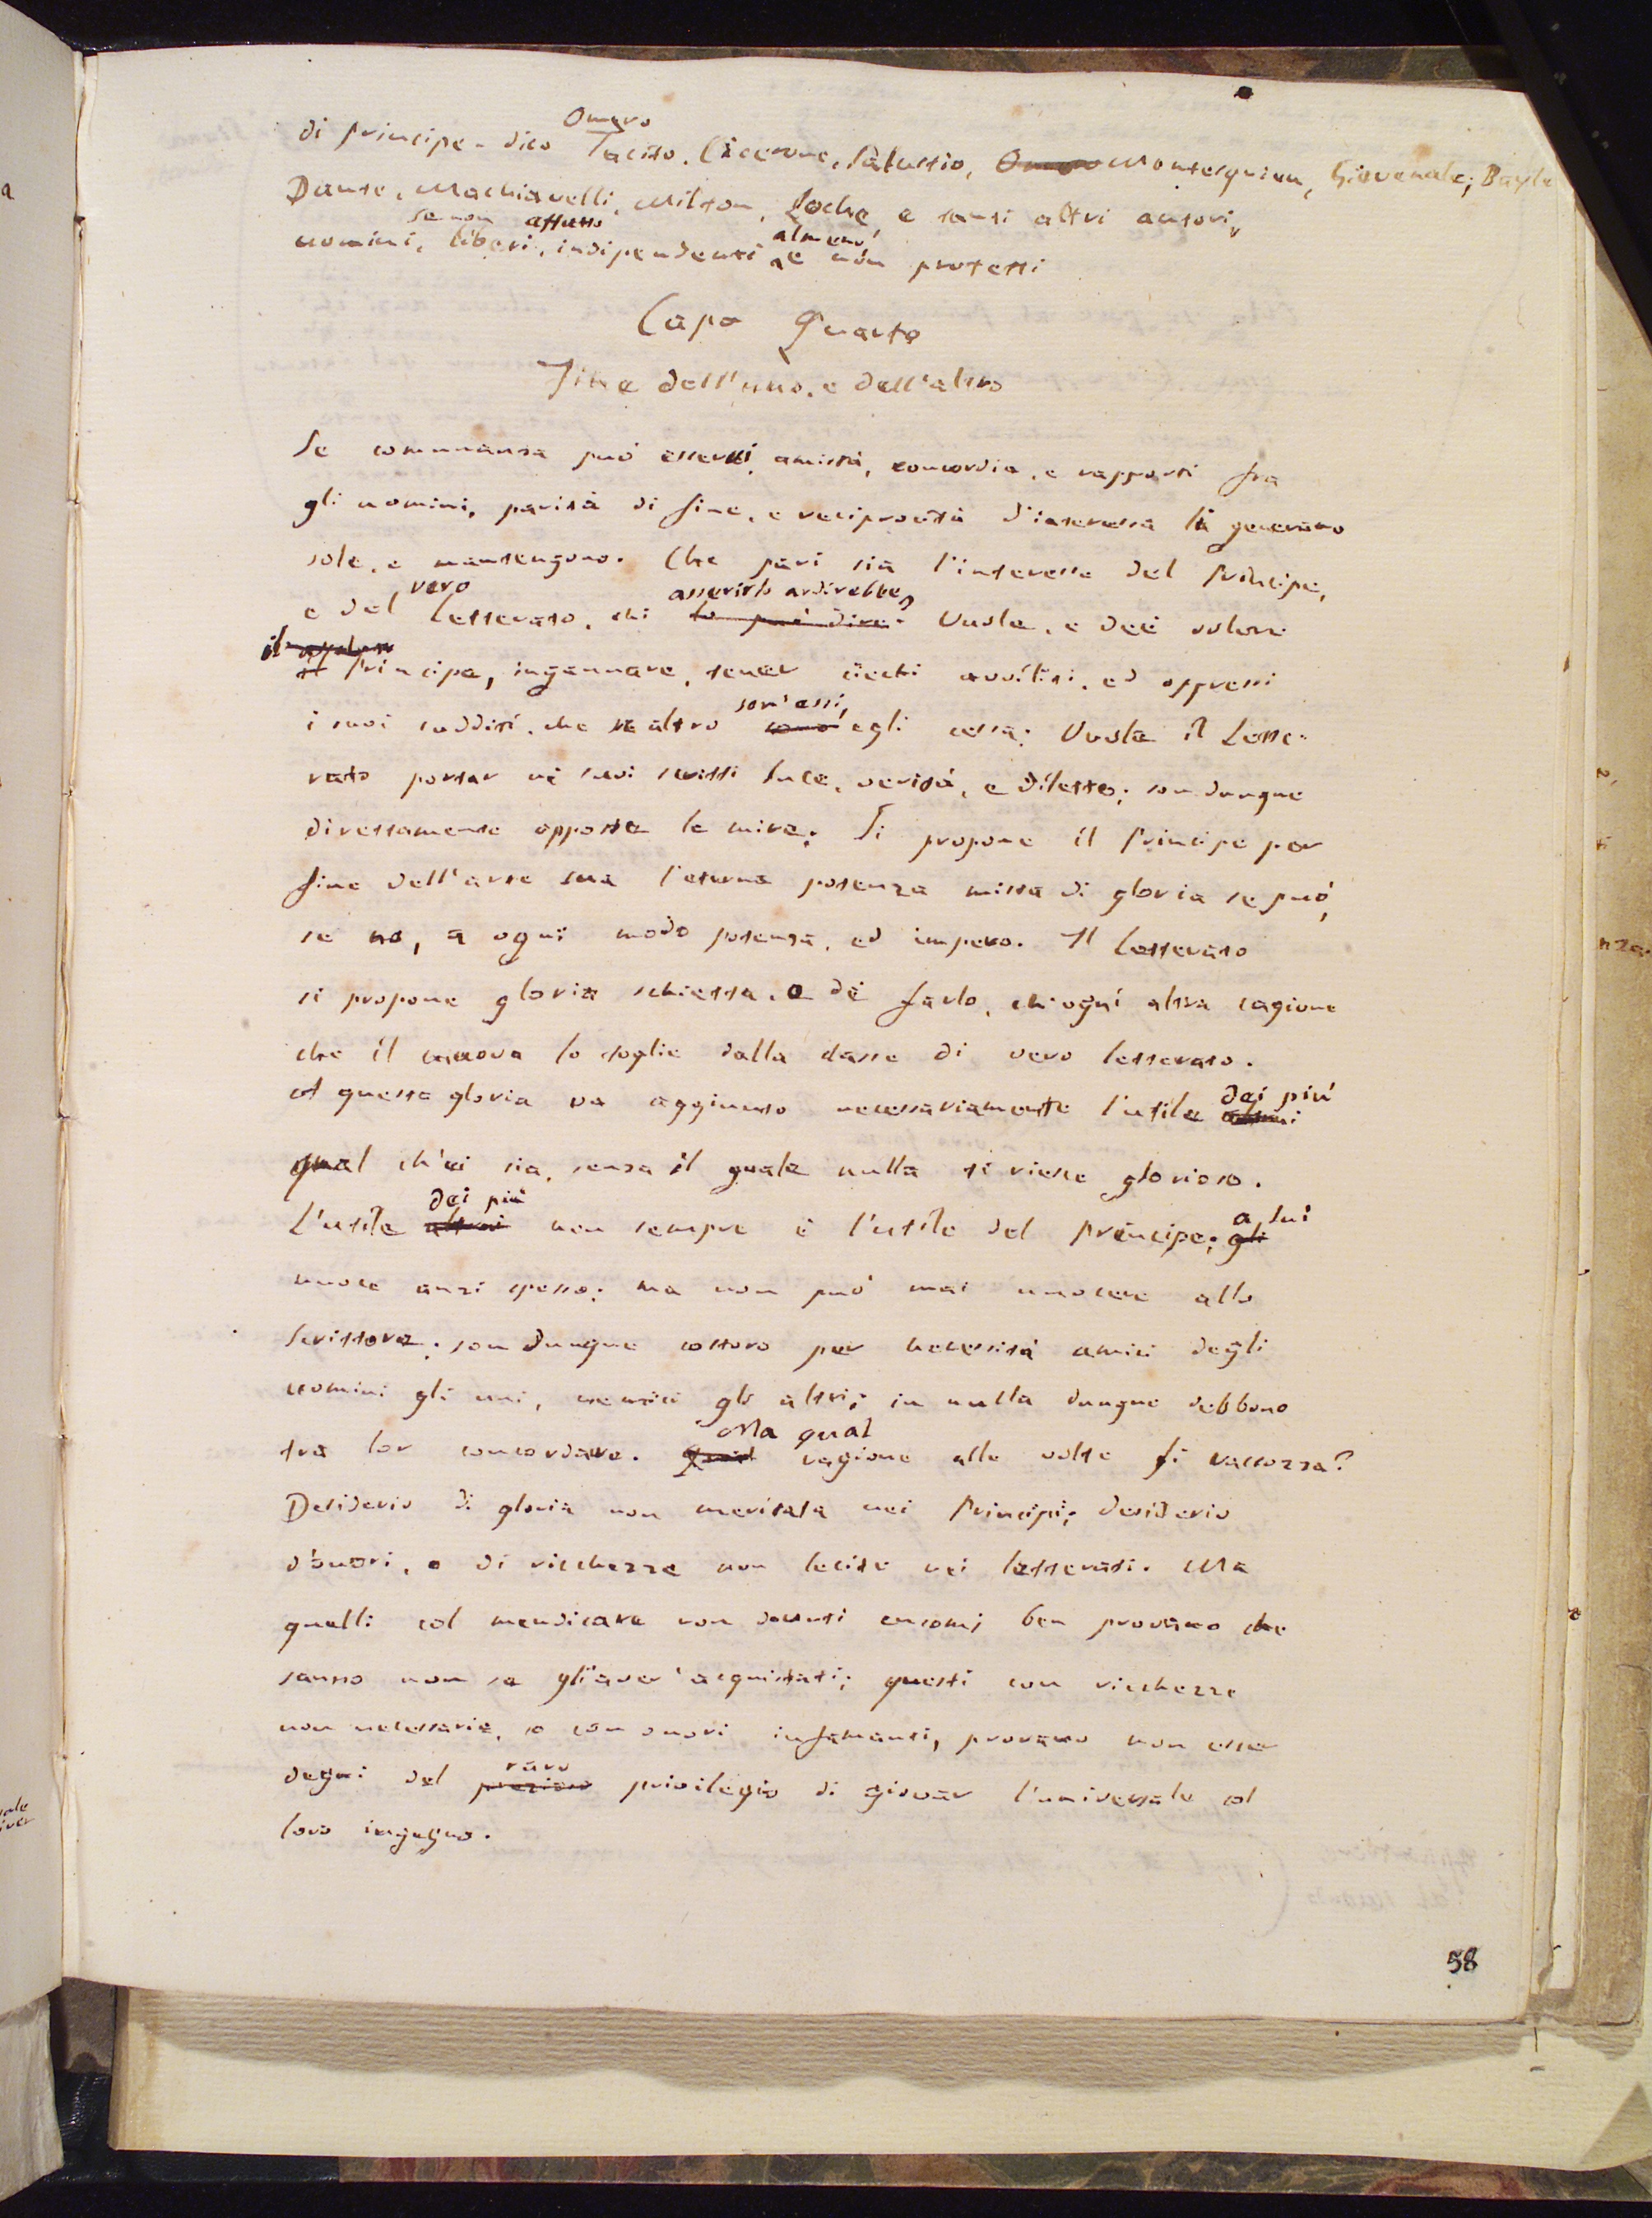 di principe. dico Omero Tacito, Cicerone, Salustio, Omero Montesquieu, Giovenale, Bayle
Dante, Machiavelli, Milton, Loche, e tanti altri autori,
uomini, se non liberi affatto, indipendenti almeno, e non protetti
Capo Quarto
Fine dell'uno, e dell'altro
Se comunanza può esservi, amistà, concordia, e rapporti fra
gli uomini, parità di fine, e reciprocità d'interesse la generano
sole, e mantengono. Che pari sia l'interesse del Principe,
e del vero Letterato, chi lo può dire. asserirlo ardirebbe? Vuole, e deè volere
il Principe, ingannare, tener ciechi avviliti, ed oppressi
i suoi sudditi, che se altro sono son'essi, egli cessa: Vuole il Lette-
rato portar ne suoi scritti luce, verità, e diletto; son dunque
direttamente opposte le mire. Si propone il Principe per
fine dell'arte sua l'eterna potenza mista di gloria se può,
se no, a ogni modo potenza, ed impero. Il Letterato
si propone gloria schietta, e dè farlo, chè ogni altra cagione
che il muova lo toglie dalla classe di vero letterato.
A questa gloria va aggiunto necessariamente l'utile altrui dei più
qual ch'ei sia, senza il quale nulla ti riesce glorioso.
L'utile altrui dei più non sempre è l'utile del principe; gli a lui
nuoce anzi spesso; ma non può mai nuocere allo
Scrittore; son dunque costoro per necessità amici degli
uomini gli uni, nemici gli altri; in nulla dunque debbono
tra lor concordare. Qual Ma qual ragione alle volte li raccozza?
Desiderio di gloria non meritata nei Principi; desiderio
d'onori, o di ricchezze non lecite nei letterati. Ma
quelli col mendicare non dovuti encomj ben provano che
sanno non se gli aver' acquistati; questi con ricchezze
non necessarie, o con onori infamanti, provano non esser
degni del prezioso raro privilegio di giovar l'universale col
loro ingegno.
58